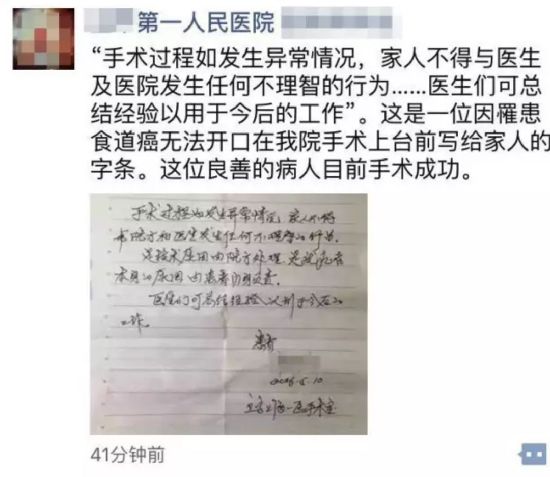 第一人民医院
“手术过程如发生异常情况，家人不得与医生
及医院发生任何不理智的行为……医生们可总
结经验以用于今后的工作”。这是一位因罹患
食道癌无法开口在我院手术上台前写给家人的
字条。这位良善的病人目前手术成功。
手术过程如发生异常情况，家人不得
与院方和医生发生任何不理智的行为。
是技术原因由院方处理，是
本身的原因由患者自身负责。
医生们可总结经验以利于今后的
工作。
患者
41分钟前